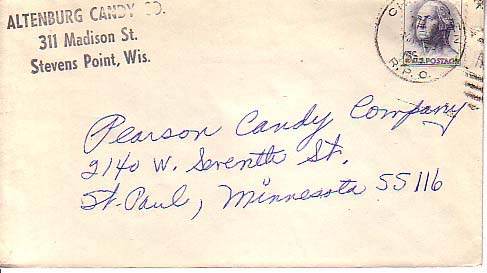 ALTENBURG CANDY CO.
311 Madison St.
Stevens Point, Wis.
U.S. POSTAGE
R.P.O.
Pearson Candy Company
2140 W. Seventh St.
St. Paul, Minnesota 55116